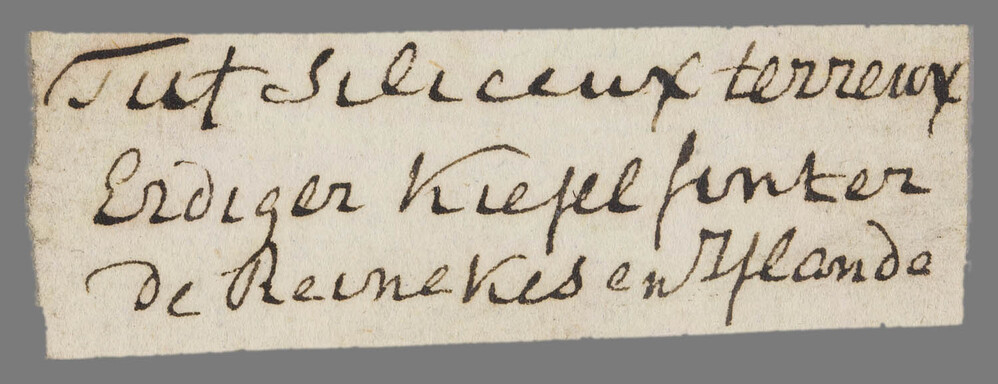 Tuf Siliceux terreux
Erdiger Kieſelſinter
de Reinekes en Iſlande